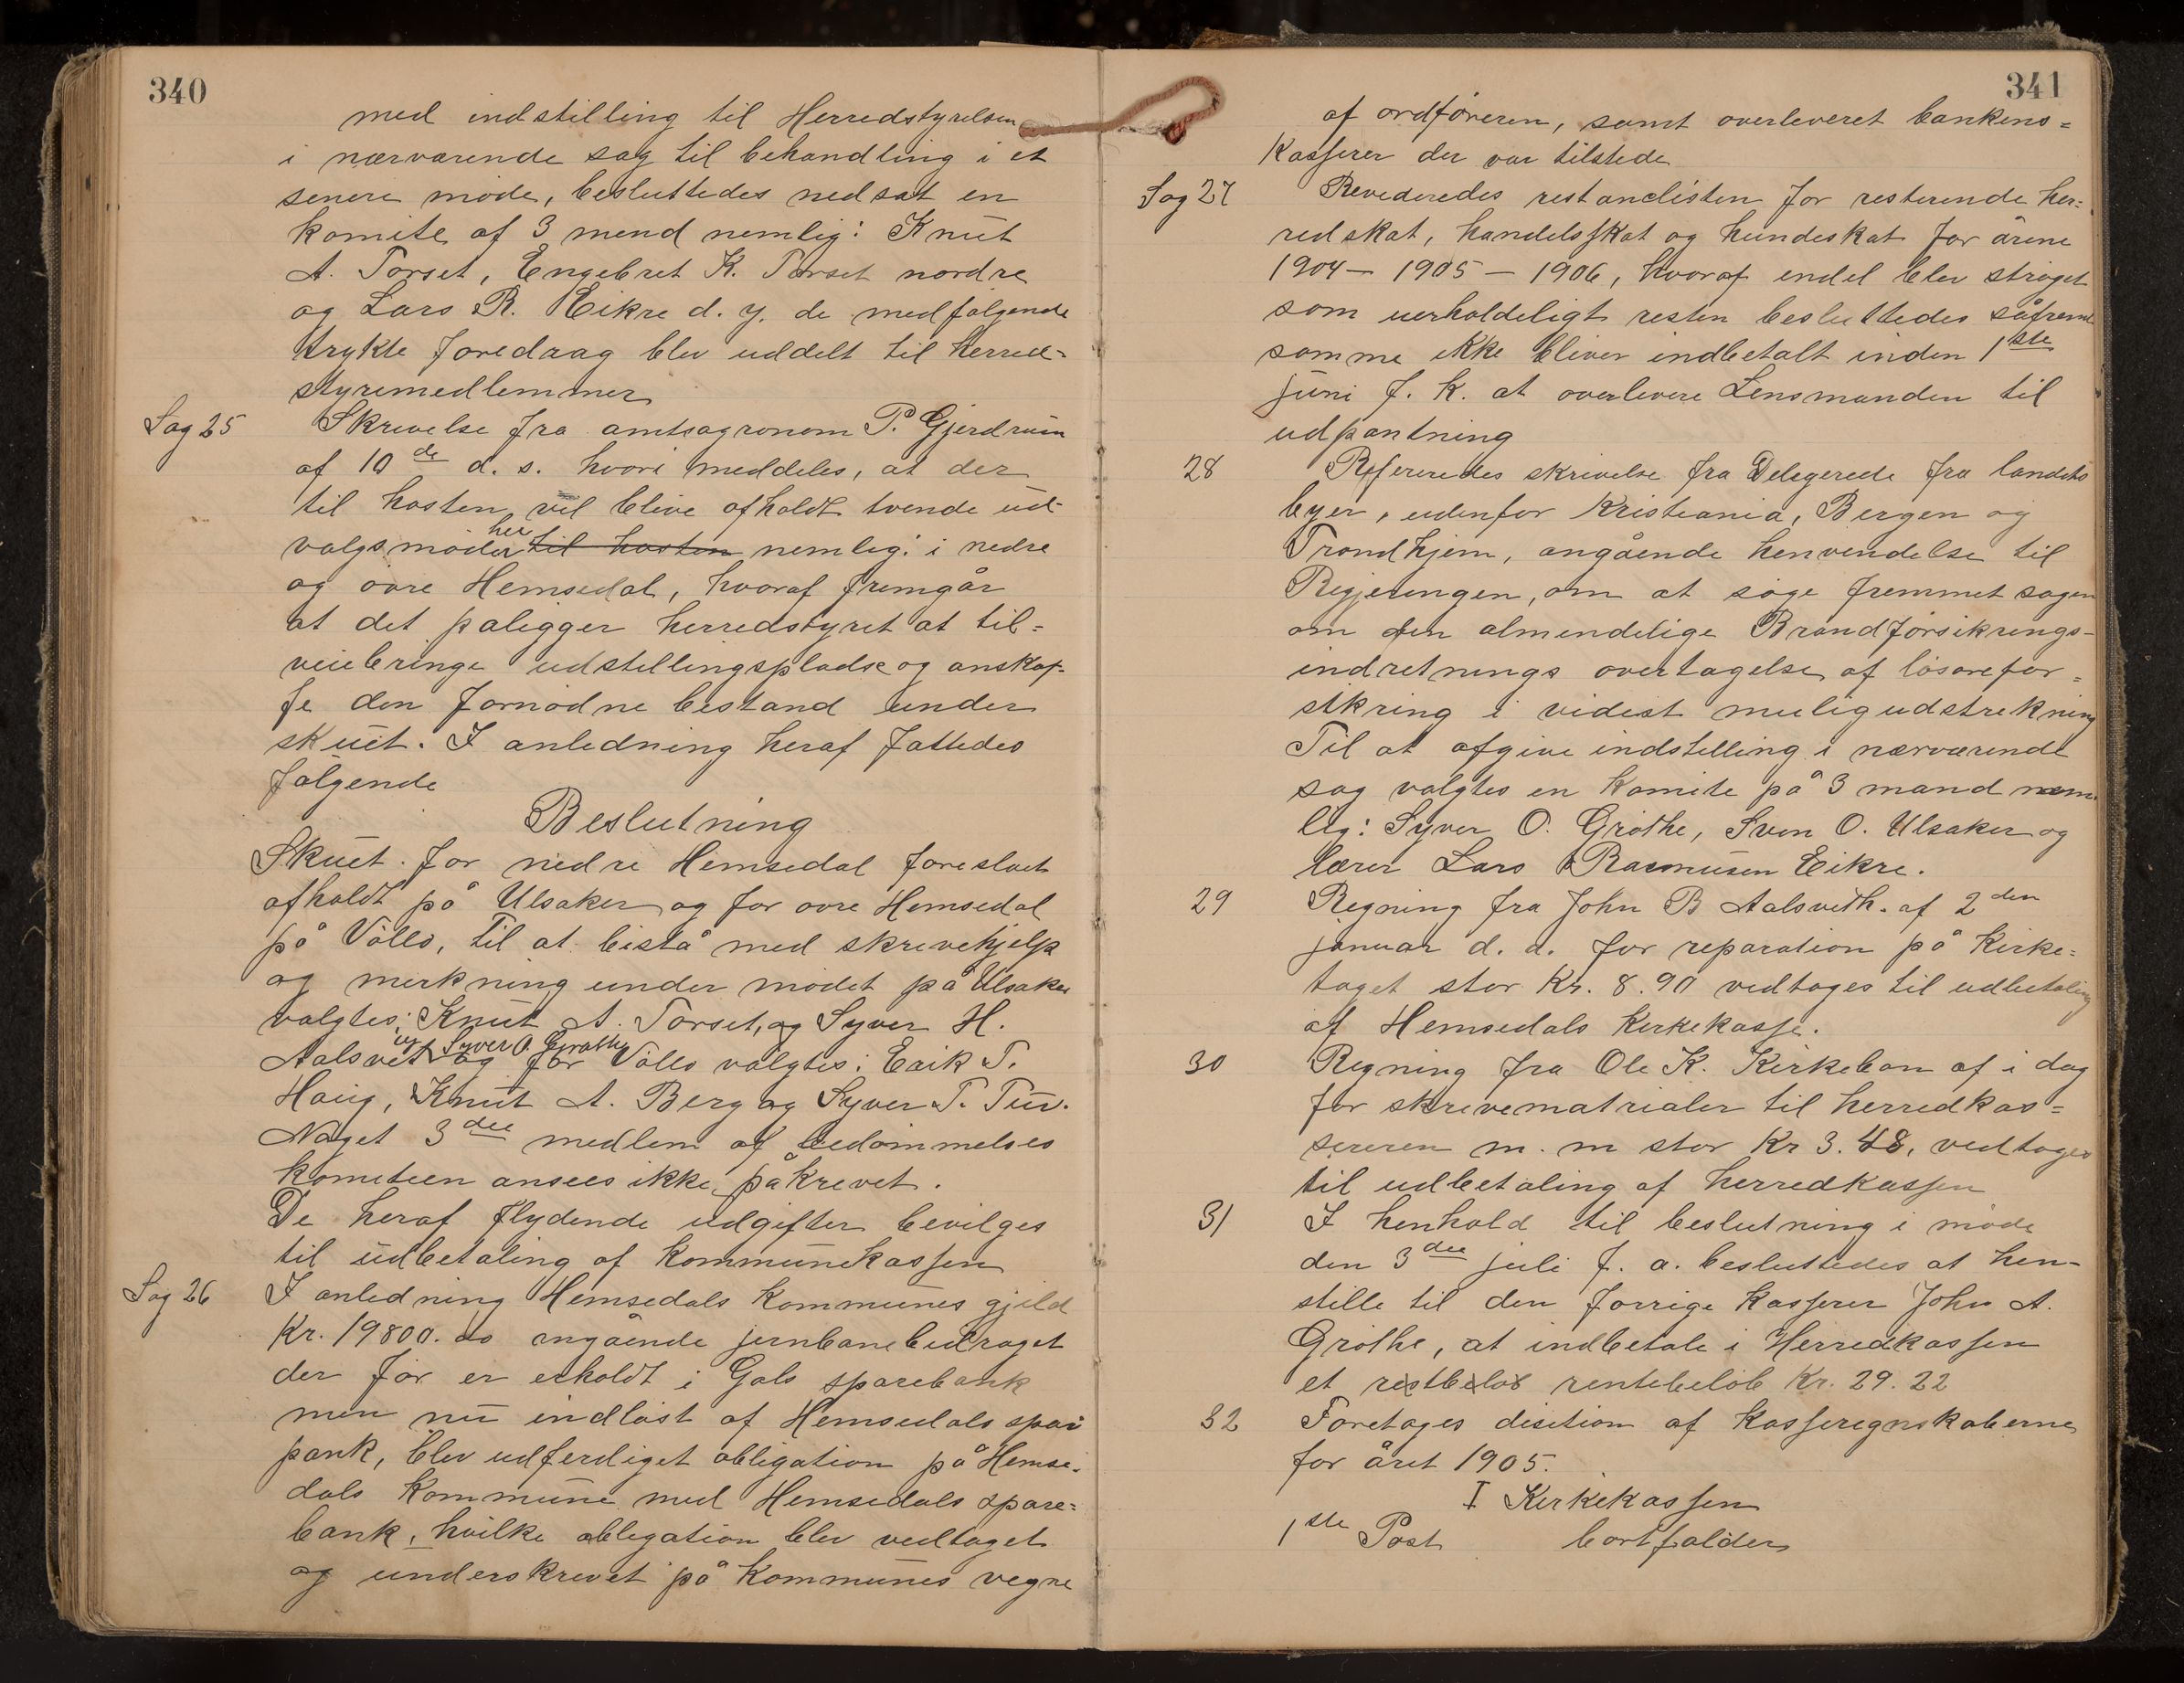 340
med indstilling til Herredstyrelsen
i nærværende sag til behandling i et
senere møde, besluttedes nedsat en
komite af 3 mend nemlig: Knut
A. Torset, Engebret K. Torset nordre
og Lars R. Eikre d. y. de medfølgende
trykte foredrag blev uddelt til herred-
styremedlemmer
Sag 25 Skrivelse fra amtsagronom P. Gjerdrum
af 10de d. s. hvori meddeles, at der
til høsten vil blive afholdt tvende ud-
valgsmøder her til høsten nemlig: i nedre
og øvre Hemsedal, hvoraf fremgår
at det paligger herredstyret at til=
veiebringe udstillingsplads og anskaf-
fe den fornødne bestand under
skuet. I anledning heraf fattedes
følgende
Beslutning
Skuet for nedre Hemsedal foreslaet
afholdt på Ulsaker og for øvre Hemsedal
på Vøllo, Til at bistå med skrivehjelp
og merkning under mødet på Ulsaker
valgtes: Knut A. Torset, og Syver H.
og Syver O. Grøthe
Aalsvet og for Vøllo valgtes: Erik T.
Haug, Knut A. Berg og Syver T. Tuv.
Noget 3die medlem af bedømmelses
komiteen ansees ikke påkrevet.
De heraf flydende udgifter bevilges
til udbetaling af kommunekassen
Sag 26 I anledning Hemsedals kommunes gjeld
Kr. 19800.00 angående jernbanebidraget
der før er erholdt i Gols sparebank
men nu indløst af Hemsedals spar
pank, blev udferdiget obligation på Hemse-
dals kommune med Hemsedals spare=
bank, hvilke obligation blev vedtaget
og underskrevet på kommunes vegne
341
af ordføreren, samt overleveret bankens=
kasserer der var tilstede
Sag 27 Revideredes restancelisten for resterende her=
redskat, handelsskat og hundeskat for årene
1904 – 1905 – 1906, hvoraf endel blev strøget
som uerholdeligt resten besluttedes såfremt
somme ikke bliver indbetalt inden 1ste
juni f. k. at overlevere Lensmanden til
udpantning
28 Refereredes skrivelse fra Delegerede fra landets
byer, udenfor Kristiania, Bergen og
Trondhjem, angående henvendelse til
Regjeringen, om at søge fremmet sagen
om den almendelige Brandforsikrings-
indretnings overtagelse af løsørefor=
sikring i videst mulig udstrekning
Til at afgive indstilling i nærværende
sag valgtes en komite på 3 mand nem-
lig: Syver O. Grøthe, Sven O. Ulsaker og
lærer Lars Rasmusen Eikre.
29 Regning fra John B Aalsveth. af 2den
januar d. a. for reparation på kirke=
taget stor Kr. 8.90 vedtoges til udbetaling
af Hemsedals kirkekasse.
30 Regning fra Ole K. Kirkebøn af i dag
for skrivematrialer til herredkas=
sereren m. m stor Kr 3.48, vedtoges
til udbetaling af herredkassen
31 I henhold til beslutning i møde
den 3die juli f. a. besluttedes at hen-
stille til den forrige kasserer John A.
Grøthe, at indbetale i Herredkassen
et restbeløb rentebeløb Kr. 29.22
32 Foretoges disition af kasseregnskaberne
for året 1905.
I Kirkekassen
1ste Post bortfalder